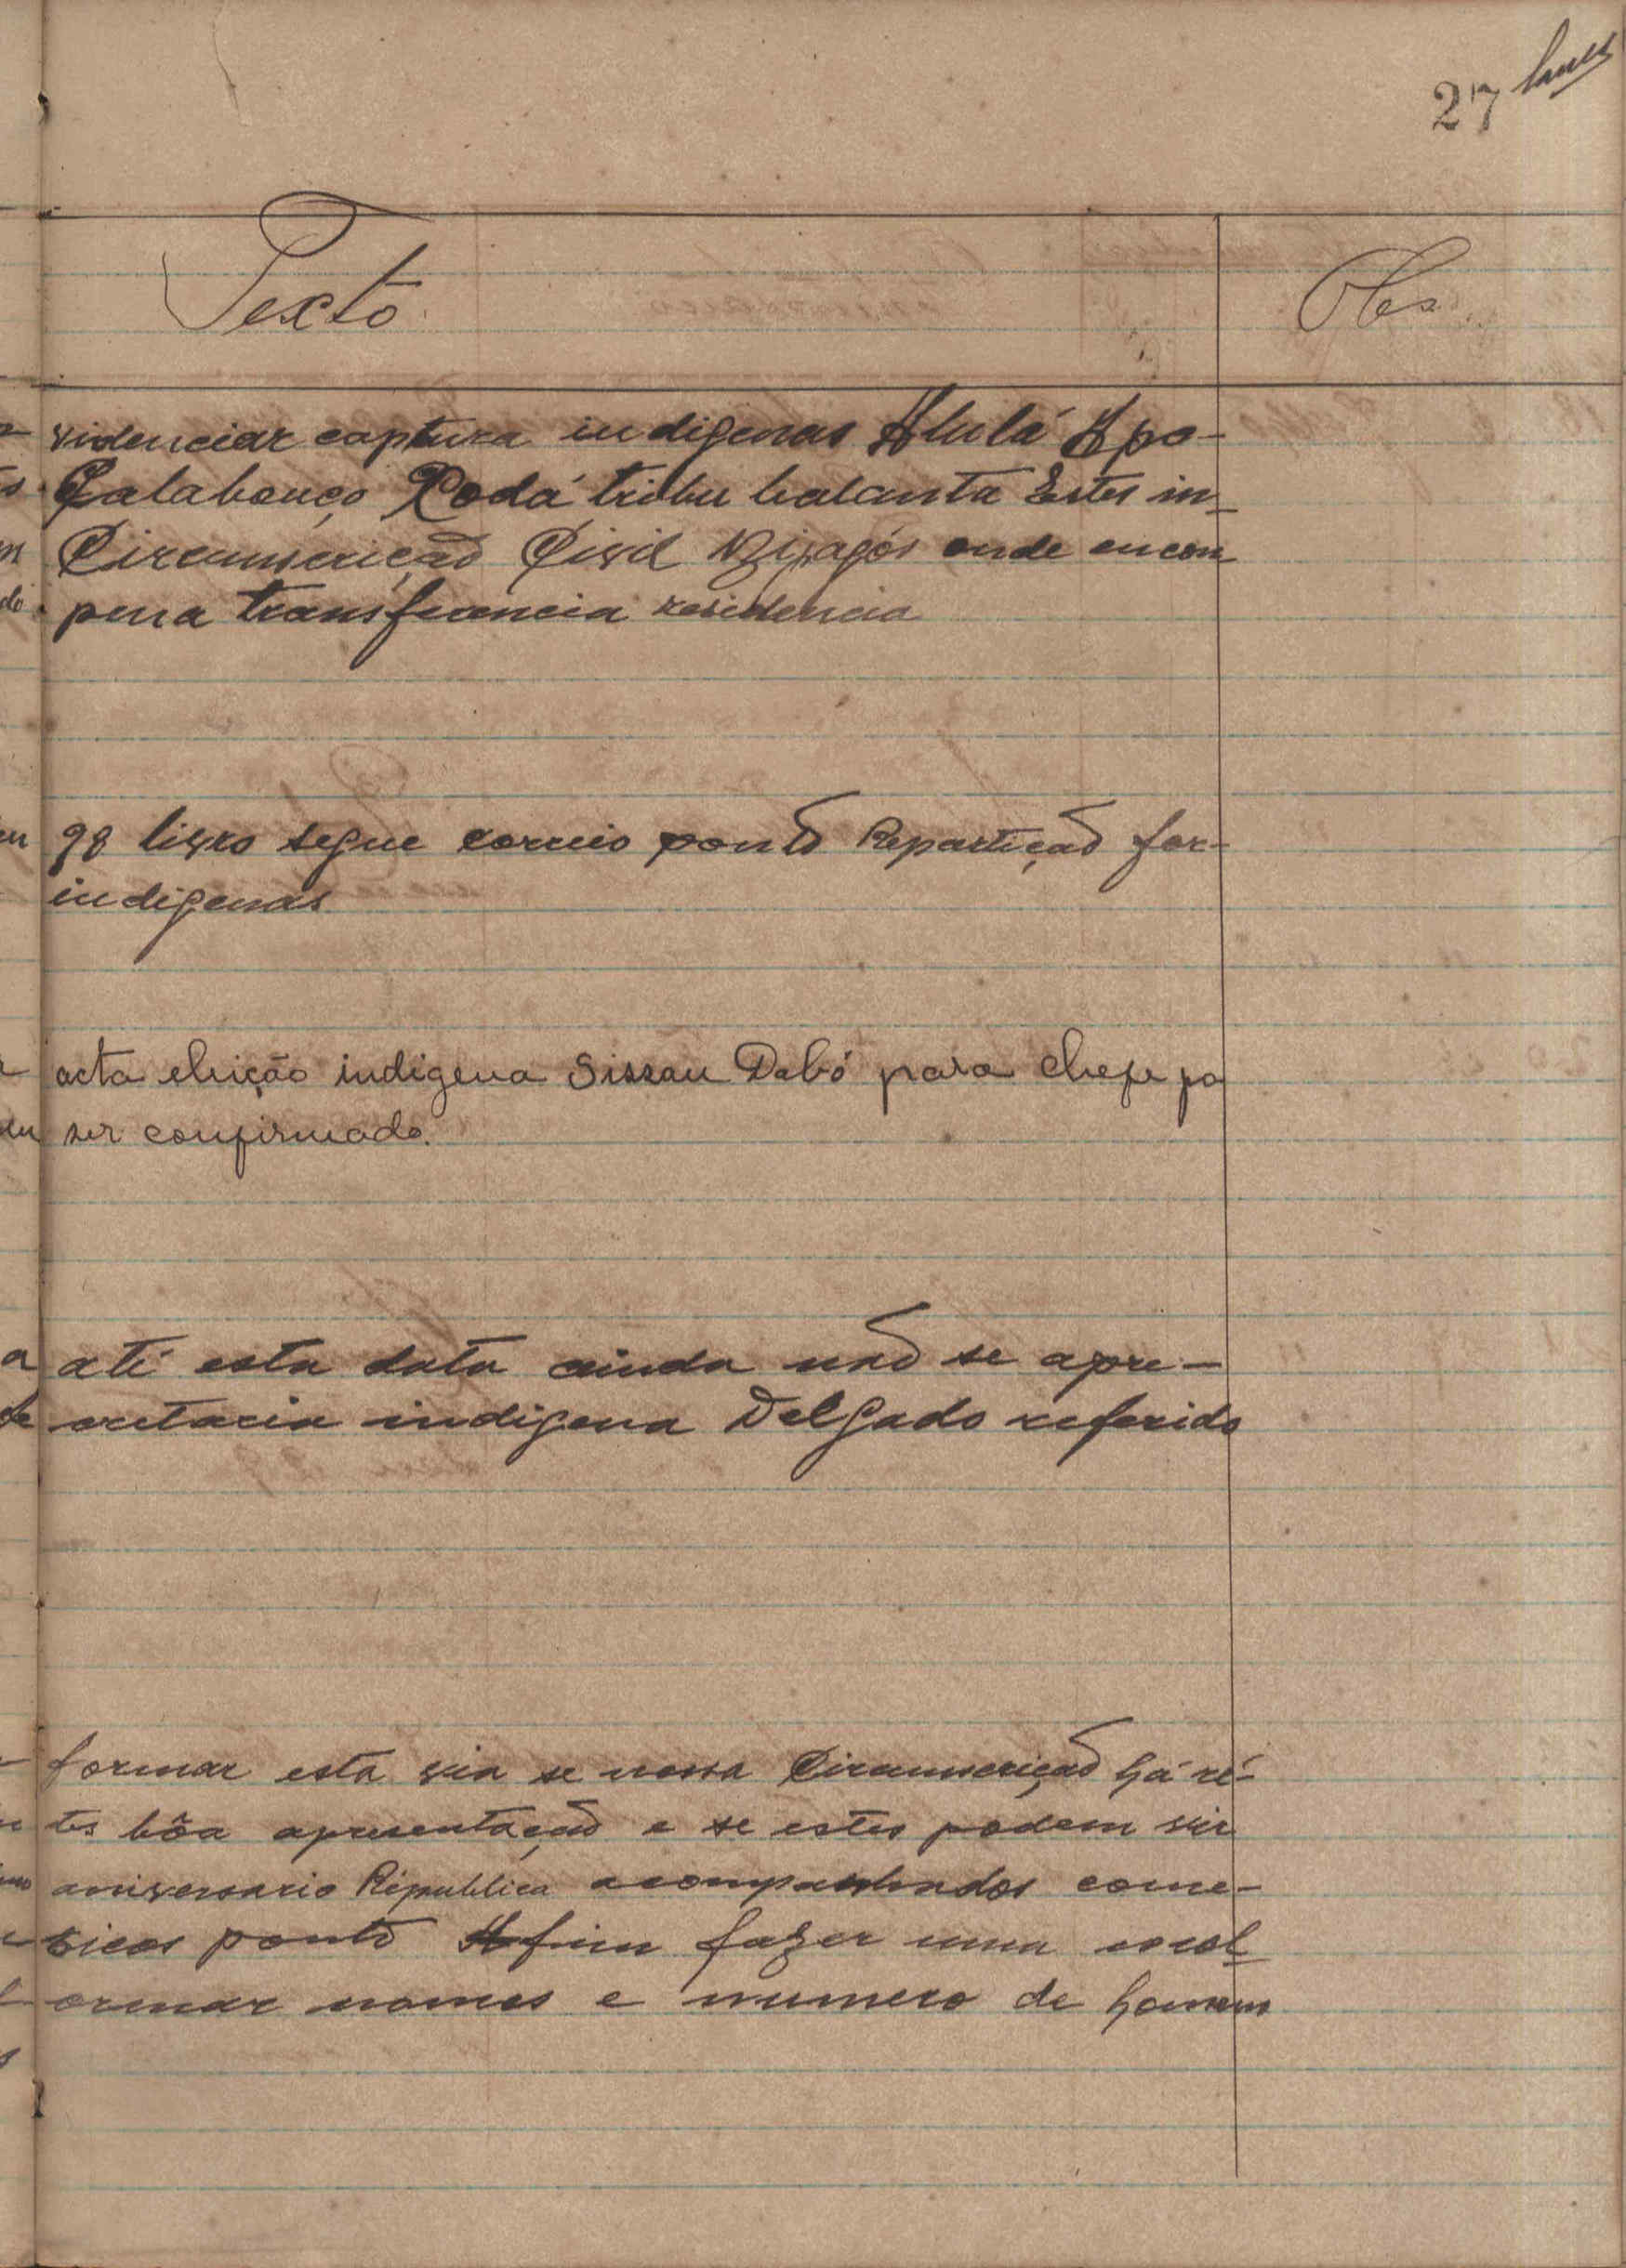 27
Texto
Obs.
videnciar captura indigenas Alulá Apo-
Calabouço Rodá tribu balanta Estes in-
Circunscriçaõ Civil Bijagós onde encon
pena transferencia residencia
98 livro segue correio ponto Repartiçaõ for-
indigenas
acta eleição indigena Sissau Dabó para chefe po
ser confirmado.
até esta data ainda naõ se apre-
cretaria indigena Delgado referido
formar esta via se nossa Circunscriçaõ há ré-
tes bôa apresentaçaõ e se estes podem vir
aniversario Républica acompanhados come-
sicos ponto Afim fazer uma
ormar nomes e numero de homens